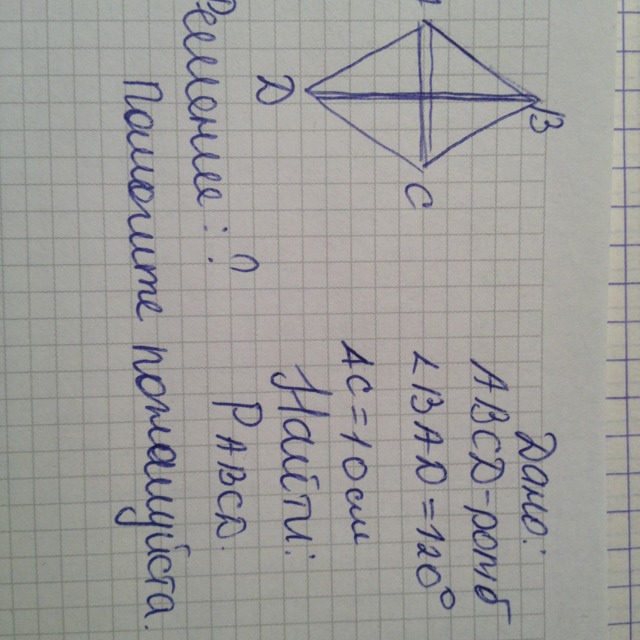 B
C
D
Дано:
ABCD-ромб
∠BAD=120°
AC=10см
Найти:
PABCD.
Решение: ?
Помогите пожалуйста.